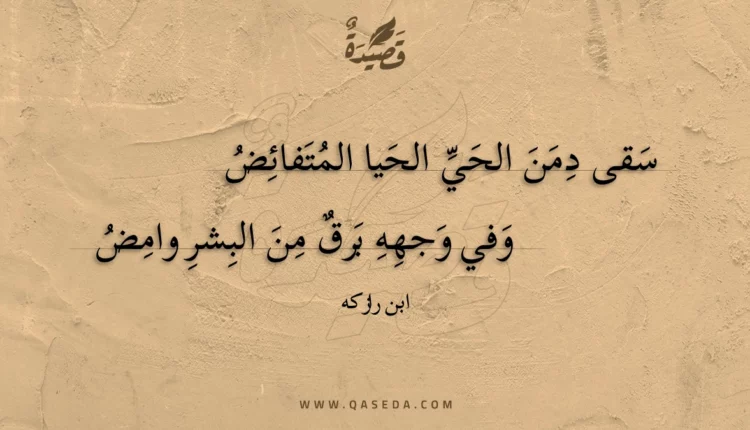 قَصِيْدَةٌ
سَقى دِمَنَ الحَيِّ الحَيا المُتَفائِضُ
وَفي وَجهِهِ بَرقٌ مِنَ البِشرِ وامِضُ
ابن رازكه
WWW.QASEDA.COM